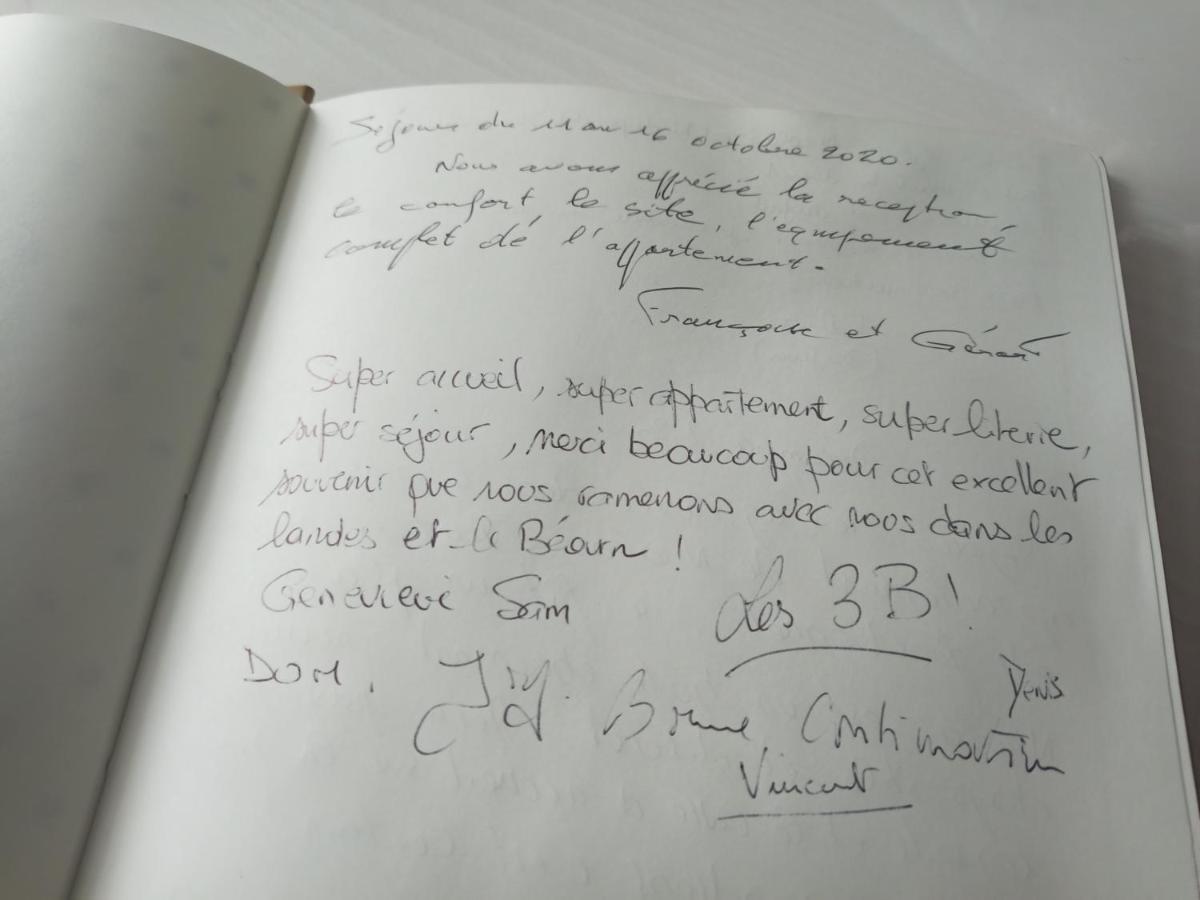 Séjour du 11 au 16 octobre 2020.
Nous avons apprécié la reception,
le confort le site, l'équipement
complet dé l'appartement.
Françoise et Gérard
Super accueil, super appartement, super literie,
super séjour, merci beaucoup pour cet excellent
souvenir que nous ramenons avec nous dans les
landes et le Béarn !
Genevieve
Les 3B!
DOM.
Denis
Bonne Continuation
Vincent